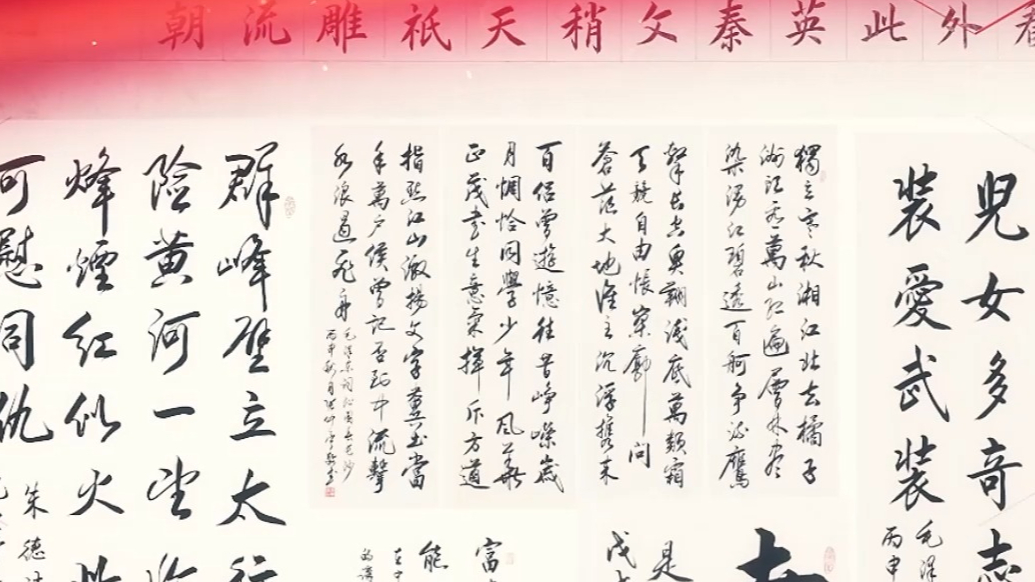 外此英秦文稍天祇雕流朝
兒女多奇志
裝愛武裝
毛澤
丙申
獨立寒秋湘江北去橘子
洲頭看萬山紅遍層林盡
染漫江碧透百舸爭流鷹
擊長空魚翔淺底萬類霜
天競自由悵寥廓問
蒼茫大地誰主沉浮攜來
百侶曾遊憶往昔崢嶸歲
月稠恰同學少年風華
正茂書生意氣揮斥方遒
指點江山激揚文字糞土當
年萬戶侯曾記否到中流擊
水浪遏飛舟
毛澤東詞沁園春長沙
群峰壁立太行
險黃河一望
烽煙紅似火此
可慰同仇
朱德
是
富
能